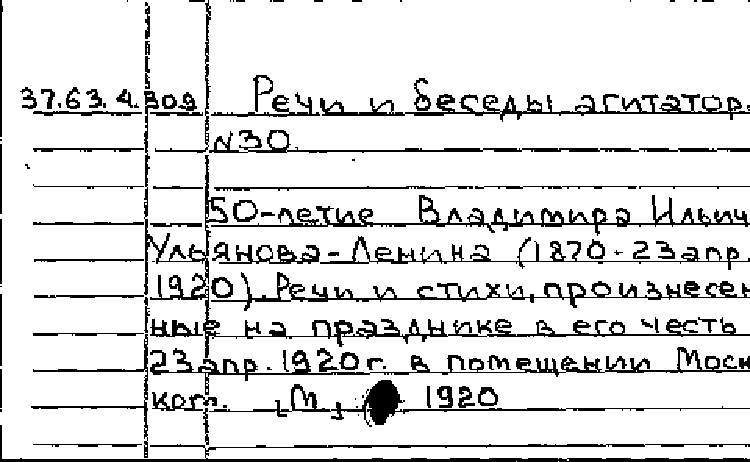 37.63.4.309 Речи и беседы агитатор
N30
50-летие Владимира Ильич
Ульянова-Ленина (1870-23апр.
1920). Речи и стихи, произнесен
ные на празднике в его честь
23апр. 1920г. в помещении Моск
ком. [М.] 1920